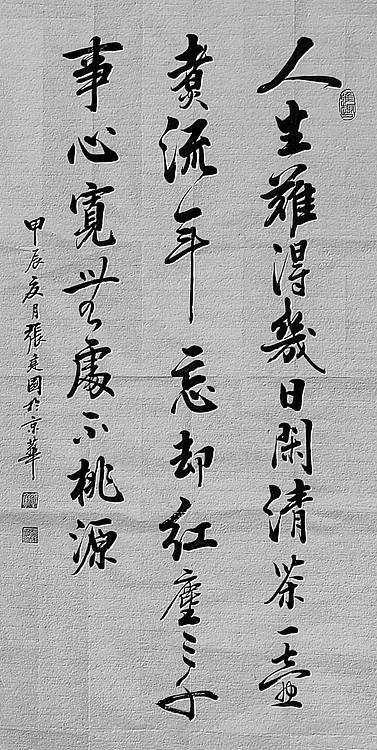 人生難得幾日閑清茶一壺
煮流年忘却紅塵三千
事心寬無處不桃源
甲辰夏月張建國於京華